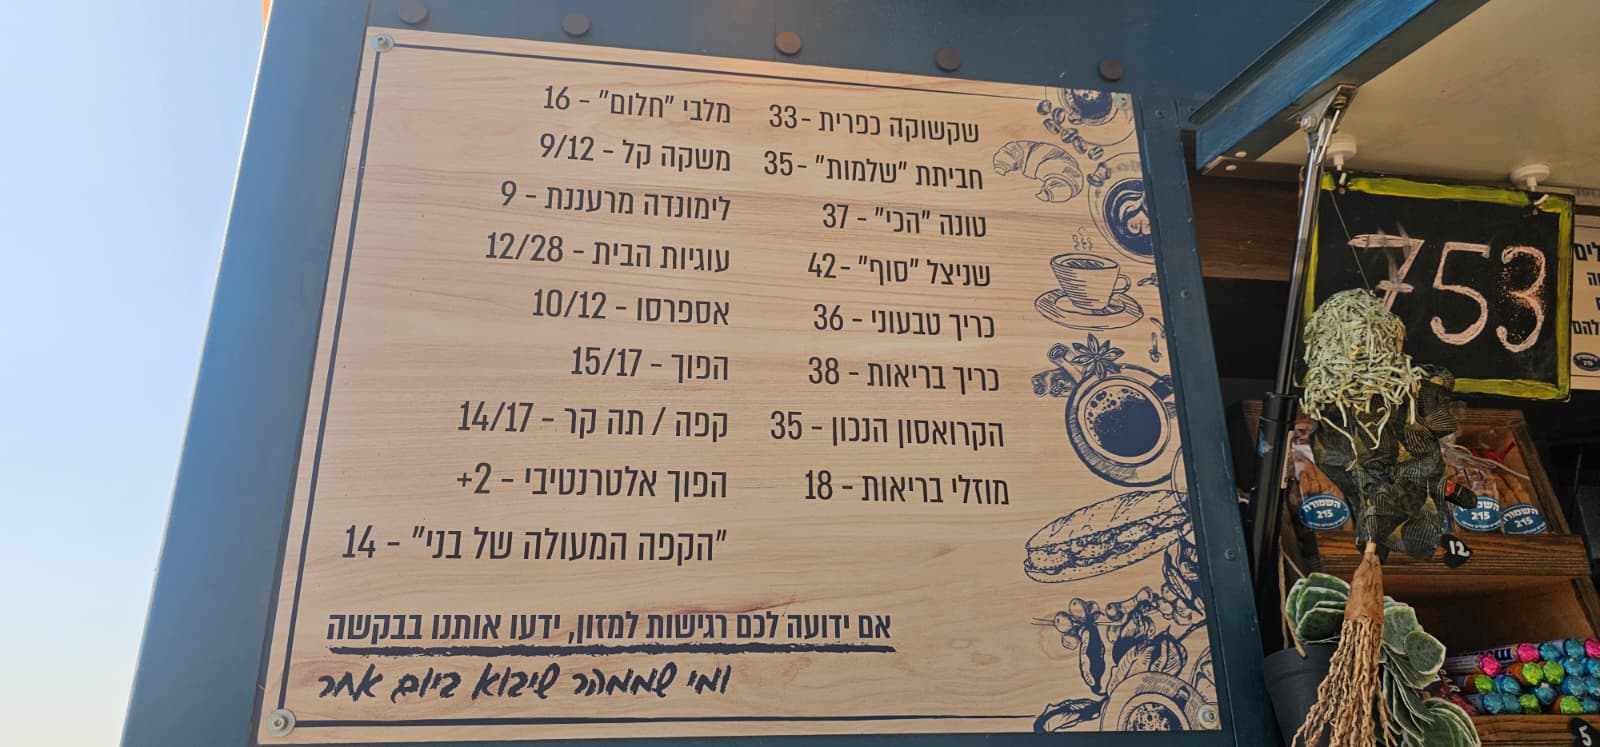 שקשוקה כפרית - 33
חביתת "שלמות" - 35
טונה "הכי" - 37
שניצל "סוף" - 42
כריך טבעוני - 36
כריך בריאות - 38
הקרואסון הנכון - 35
מוזלי בריאות - 18
מלבי "חלום" - 16
משקה קל - 9/12
לימונדה מרעננת - 9
עוגיות הבית - 12/28
אספרסו - 10/12
הפוך - 15/17
קפה / תה קר - 14/17
הפוך אלטרנטיבי - 2+
"הקפה המעולה של בני" - 14
אם ידועה לכם רגישות למזון, ידעו אותנו בבקשה
ומי שממהר שיבוא ביום אחר
753
להם
השמורה
215
215
215
12
5